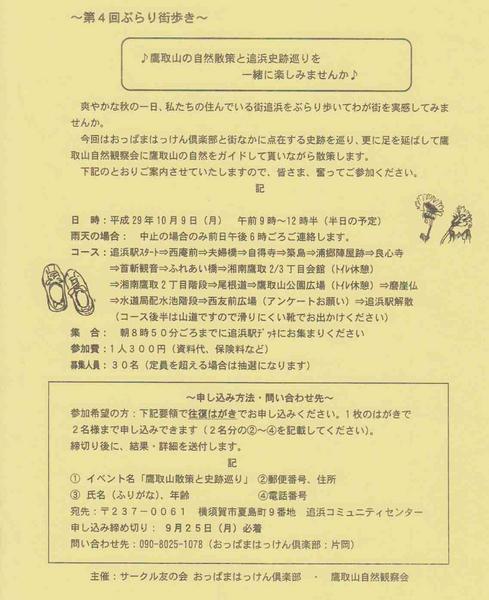 ～第４回ぶらり街歩き～
♪鷹取山の自然散策と追浜史跡巡りを
一緒に楽しみませんか♪
爽やかな秋の一日、私たちの住んでいる街追浜をぶらり歩いてわが街を実感してみま
せんか。
今回はおっぱまはっけん倶楽部と街なかに点在する史跡を巡り、更に足を延ばして鷹
取山自然観察会に鷹取山の自然をガイドして貰いながら散策します。
下記のとおりご案内させていたしますので、皆さま、奮ってご参加ください。
記
日　時：平成29年10月9日（月）　午前９時～12時半（半日の予定）
雨天の場合：　中止の場合のみ前日午後６時ごろご連絡します。
コース：追浜駅ｽﾀｰﾄ⇒西庵前⇒夫婦橋⇒自得寺⇒築島⇒浦郷陣屋跡⇒良心寺
⇒首斬観音⇒ふれあい橋⇒湘南鷹取2/3丁目会館（ﾄｲﾚ休憩）
⇒湘南鷹取２丁目階段⇒尾根道⇒鷹取山公園広場（ﾄｲﾚ休憩）⇒磨崖仏
⇒水道局配水池階段⇒西友前広場（アンケートお願い）⇒追浜駅解散
（コース後半は山道ですので滑りにくい靴でお出かけください）
集　合：　朝８時５０分ごろまでに追浜駅ﾃﾞｯｷにお集まりください
参加費：１人３００円（資料代、保険料など）
募集人員：３０名（定員を超える場合は抽選になります）
～申し込み方法・問い合わせ先～
参加希望の方：下記要領で往復はがきでお申し込みください。１枚のはがきで
２名様まで申し込みできます（２名分の②～④を記載してください）。
締切り後に、結果・詳細を送付します。
記
①　イベント名「鷹取山散策と史跡巡り」　②郵便番号、住所
③　氏名（ふりがな）、年齢　④電話番号
宛先：〒２３７－００６１　横須賀市夏島町９番地　追浜コミュニティセンター
申し込み締め切り：　９月２５日（月）必着
問い合わせ先：090-8025-1078（おっぱまはっけん倶楽部：片岡）
主催：サークル友の会 おっぱまはっけん倶楽部　・　鷹取山自然観察会